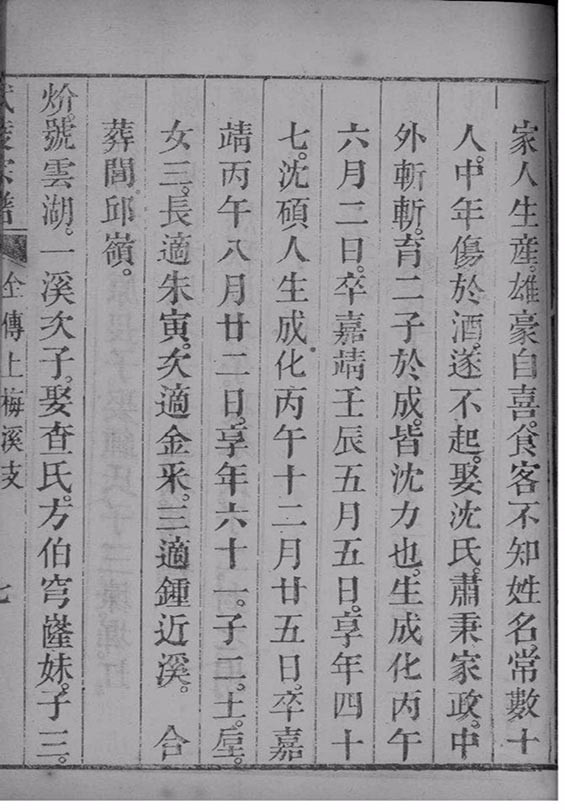 家人生産。雄豪自喜。食客不知姓名。常數十
人。中年傷於酒。遂不起。娶沈氏。肅秉家政。中
外斬斬。育二子於成。皆沈力也。生成化丙午
六月二日。卒嘉靖壬辰五月五日。享年四十
七。沈碩人生成化丙午十二月廿五日。卒嘉
靖丙午八月廿二日。享年六十一。子二。土。垕。
女三。長適朱寅。次適金采。三適鍾近溪。 合
葬閭邱嶺。
炌。號雲湖。一溪次子。娶查氏。方伯穹窿妹。子三。
宗譜 仝傳上梅溪支 七